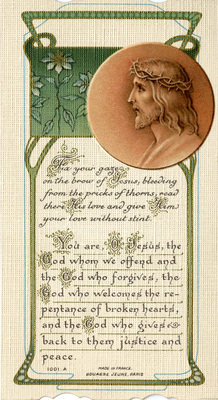 Fix your gaze
on the brow of Jesus, bleeding
from the pricks of thorns, read
there His love and give Him
your love without stint.
You are, O Jesus, the
God whom we offend and
the God who forgives, the
God who welcomes the re-
pentance of broken hearts,
and the God who gives
back to them justice and
peace.
1001 A
MADE IN FRANCE.
BOUMARD JEUNE, PARIS